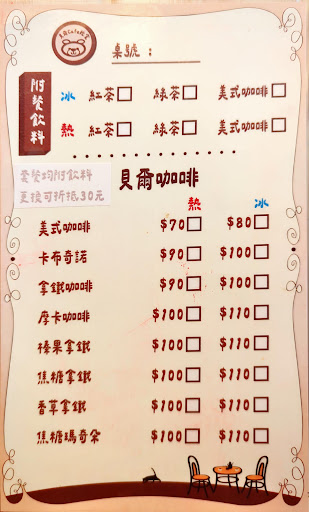 桌號：
附餐飲料
冰 紅茶 綠茶 美式咖啡
熱 紅茶 綠茶 美式咖啡
套餐均附飲料
更換可折抵30元
貝爾咖啡
熱 冰
美式咖啡 $70 $80
卡布奇諾 $90 $100
拿鐵咖啡 $90 $100
摩卡咖啡 $100 $110
榛果拿鐵 $100 $110
焦糖拿鐵 $100 $110
香草拿鐵 $100 $110
焦糖瑪奇朵 $100 $110